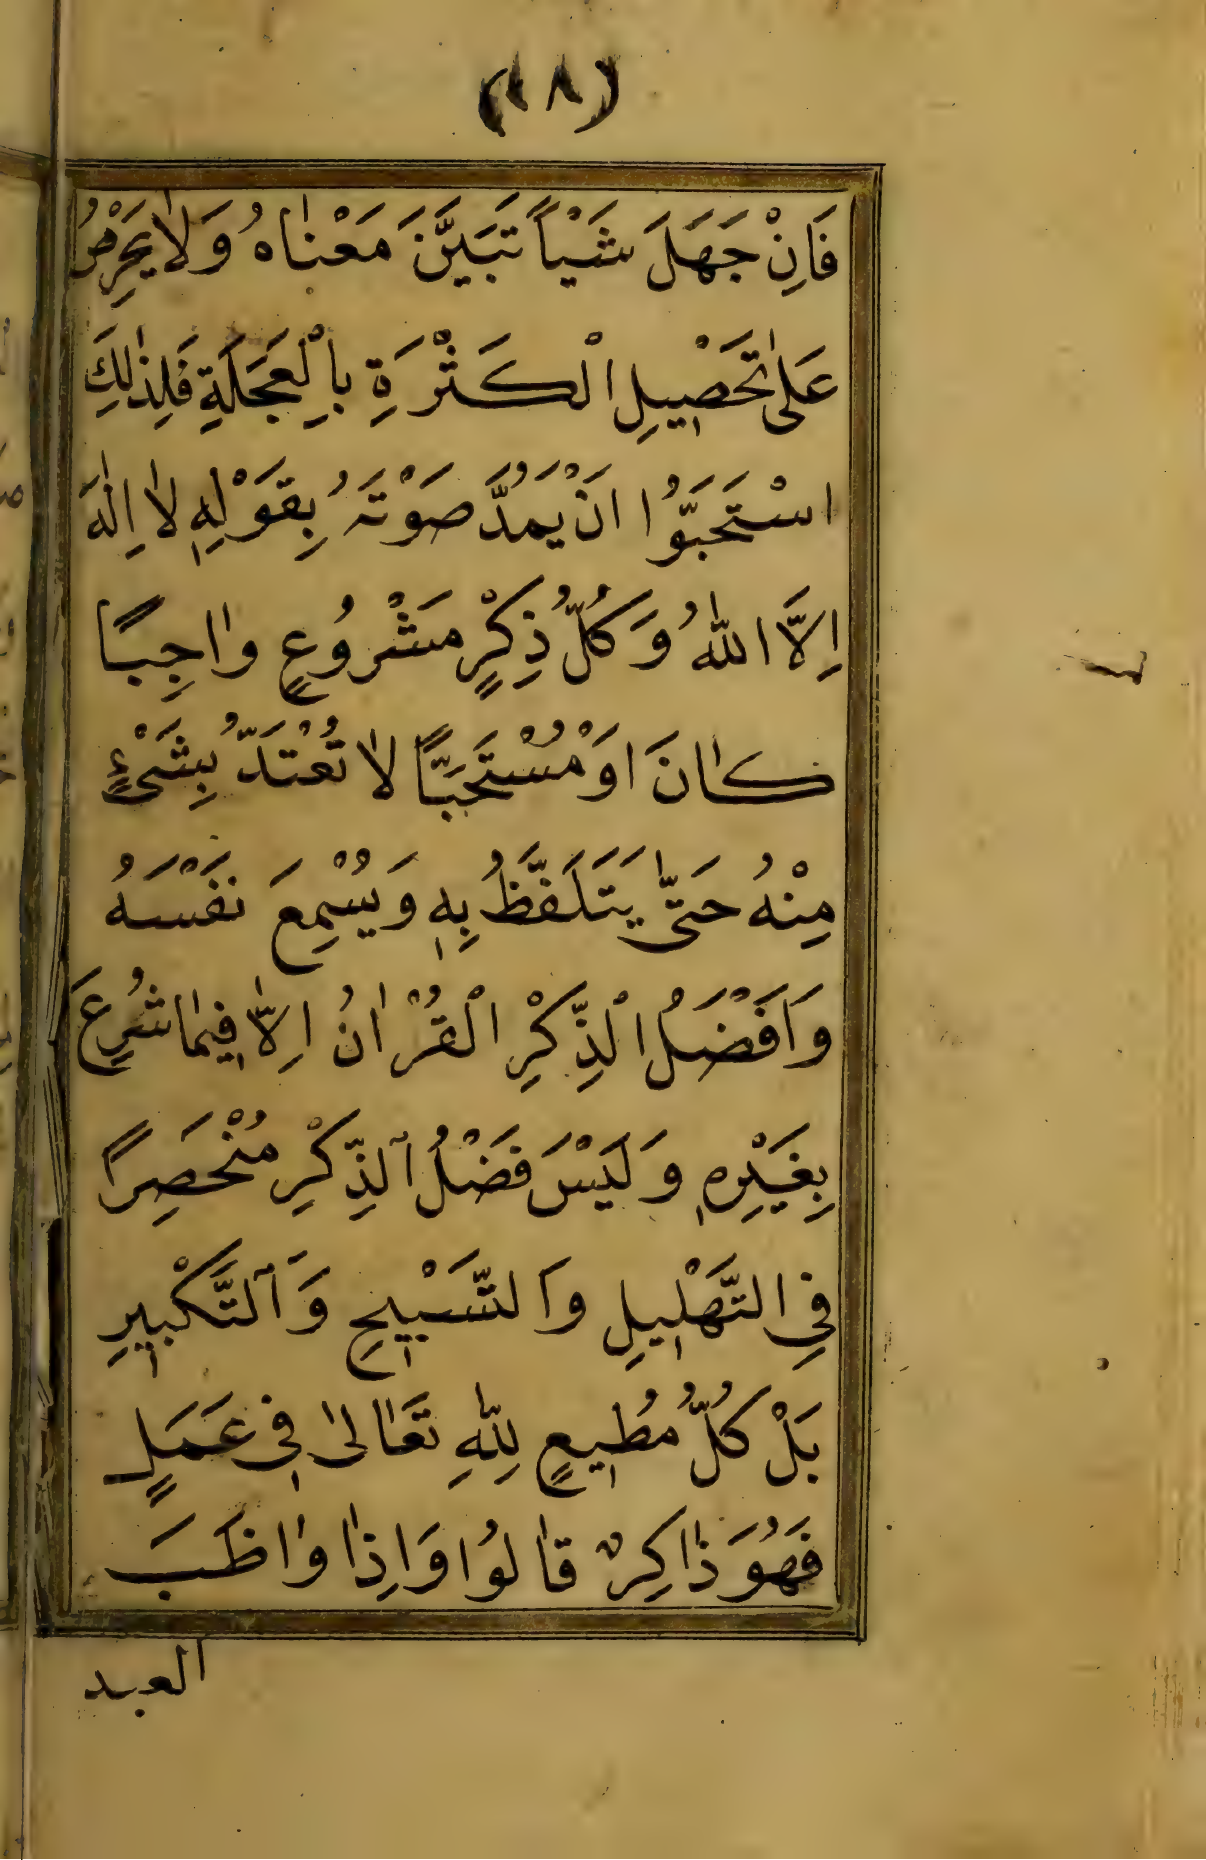 (١٨)
فَاِنْ جَهِلَ شَيْاً تَبَيَّنَ مَعْنٰاهُ وَلٰا يَحْرِصُ
عَلىٰ تَحْصٖيلِ الْكَثْرَةِ بِالْعَجَلَةِ فَلِذٰلِكَ
اسْتَحَبُّوا اَنْ يَمُدَّ صَوْتَهُ بِقَوْلِهٖ لٰا اِلٰهَ
اِلَّا اللّٰهُ وَكُلُّ ذِكْرٍ مَشْرُوعٍ وٰاجِبًا
كٰانَ اَوْ مُسْتَحَبًّا لٰا تُعْتَدُّ بِشَىْءٍ
مِنْهُ حَتّٰى يَتَلَفَّظُ بِهٖ وَيُسْمِعَ نَفْسَهُ
وَاَفْضَلُ الْذِّكْرِ الْقُرْاٰنُ اِلّٰا فٖيمٰا شُرِعَ
بِغَيْرِهٖ وَلَيْسَ فَضْلُ الذِّكْرِ مُنْحَصِرًا
فِى التَّهْلٖيلِ وَالتَّسْبٖيحِ وَالتَّكْبٖيرِ
بَلْ كُلُّ مُطٖيعٍ لِلّٰهِ تَعٰالىٰ فٖى عَمَلٍ
فَهُوَ ذٰاكِرٌ قٰالُوا وَاِذٰا وٰاظَبَ
العبد